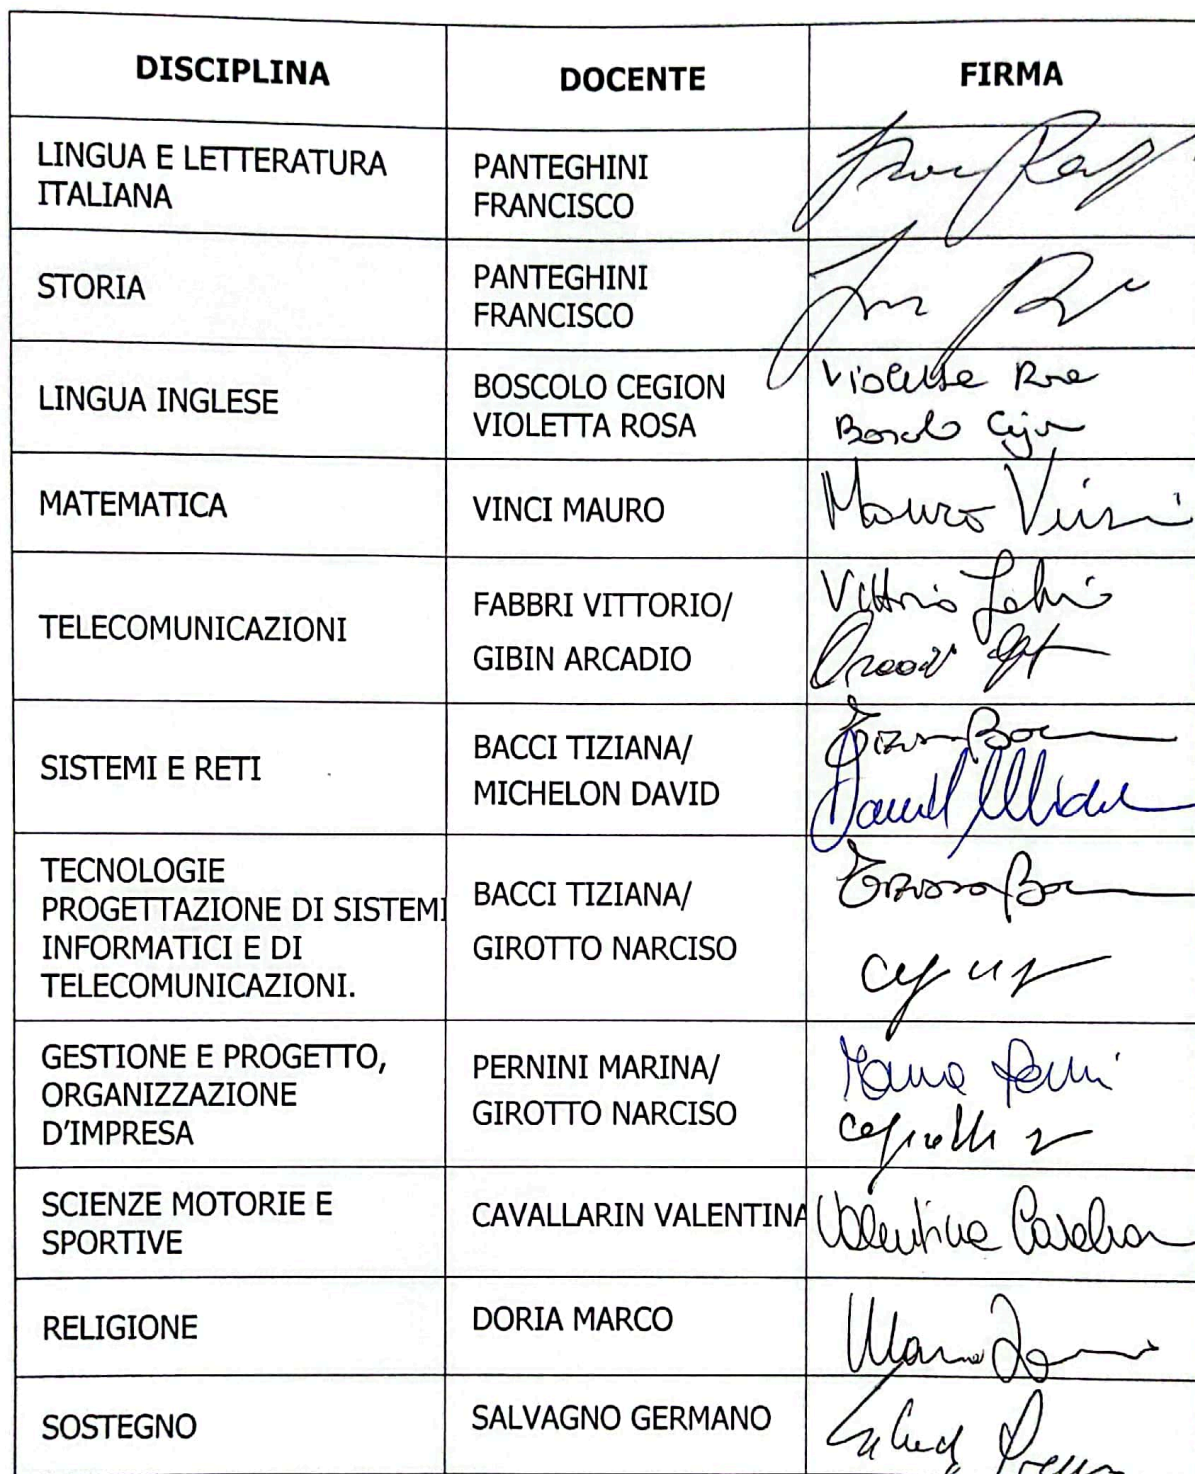 DISCIPLINA DOCENTE FIRMA
LINGUA E LETTERATURA
ITALIANA
PANTEGHINI
FRANCISCO
STORIA
PANTEGHINI
FRANCISCO
LINGUA INGLESE
BOSCOLO CEGION
VIOLETTA ROSA
Violetta Rosa
Boscolo Cegion
MATEMATICA
VINCI MAURO
Mauro Vinci
TELECOMUNICAZIONI
FABBRI VITTORIO/
GIBIN ARCADIO
Vittorio Fabbri
SISTEMI E RETI
BACCI TIZIANA/
MICHELON DAVID
TECNOLOGIE
PROGETTAZIONE DI SISTEMI
INFORMATICI E DI
TELECOMUNICAZIONI.
BACCI TIZIANA/
GIROTTO NARCISO
GESTIONE E PROGETTO,
ORGANIZZAZIONE
D'IMPRESA
PERNINI MARINA/
GIROTTO NARCISO
SCIENZE MOTORIE E
SPORTIVE
CAVALLARIN VALENTINA
Valentina Cavallarin
RELIGIONE
DORIA MARCO
SOSTEGNO
SALVAGNO GERMANO